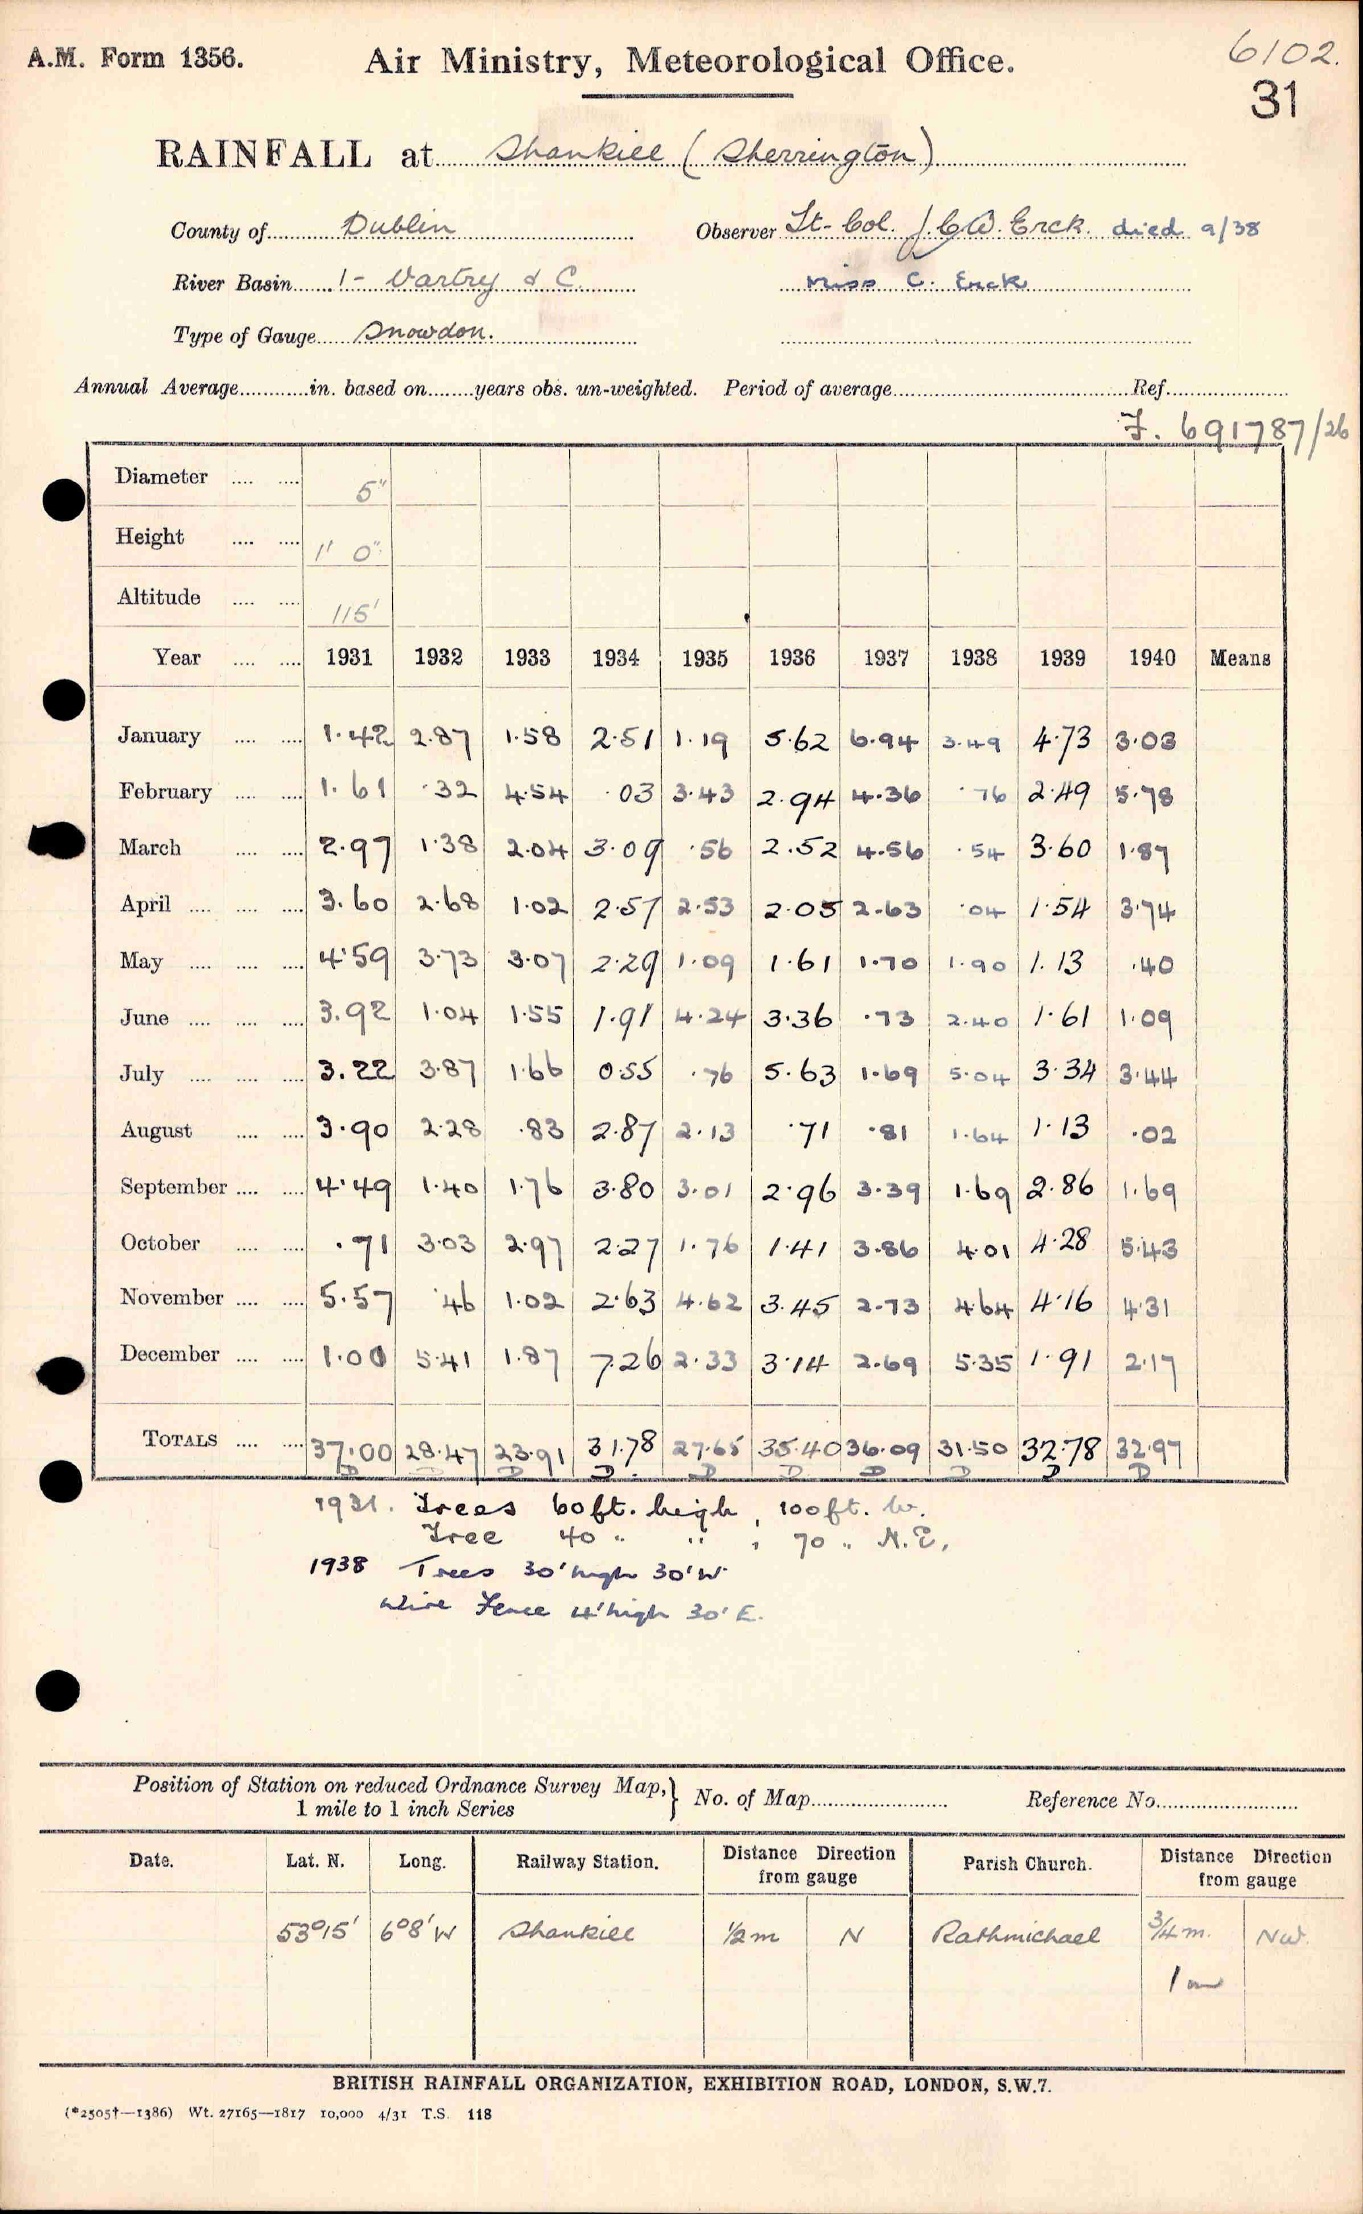 A.M. Form 1356. Air Ministry, Meteorological Office. 6102.
31
RAINFALL at Shankill (Sherrington)
County of Dublin Observer Lt-Col. J.C.W. Erck. died 9/38
River Basin 1- Vartry & C. Miss C. Erck
Type of Gauge Snowdon.
Annual Average............in. based on........years obs. un-weighted. Period of average........................................Ref.....................
F. 691787/26
Diameter .... .... 5"
Height .... .... 1' 0"
Altitude .... .... 115'
Year .... .... 1931 1932 1933 1934 1935 1936 1937 1938 1939 1940 Means
January .... .... 1.42 2.87 1.58 2.51 1.19 5.62 6.94 3.49 4.73 3.03
February .... .... 1.61 .32 4.54 .03 3.43 2.94 4.36 .76 2.49 5.78
March .... .... 2.97 1.38 2.04 3.09 .56 2.52 4.56 .54 3.60 1.87
April .... .... .... 3.60 2.68 1.02 2.57 2.53 2.05 2.63 .04 1.54 3.74
May .... .... .... 4.59 3.73 3.07 2.29 1.09 1.61 1.70 1.90 1.13 .40
June .... .... .... 3.92 1.04 1.55 1.91 4.24 3.36 .73 2.40 1.61 1.09
July .... .... .... 3.22 3.87 1.66 0.55 .76 5.63 1.69 5.04 3.34 3.44
August .... .... 3.90 2.28 .83 2.87 2.13 .71 .81 1.64 1.13 .02
September .... .... 4.49 1.40 1.76 3.80 3.01 2.96 3.39 1.69 2.86 1.69
October .... .... .71 3.03 2.97 2.27 1.76 1.41 3.86 4.01 4.28 5.43
November .... .... 5.57 .46 1.02 2.63 4.62 3.45 2.73 4.64 4.16 4.31
December .... .... 1.00 5.41 1.87 7.26 2.33 3.14 2.69 5.35 1.91 2.17
TOTALS .... .... 37.00 28.47 23.91 31.78 27.65 35.40 36.09 31.50 32.78 32.97
D D D D D D D D D D
1931. Trees 60ft. high, 100ft. W.
Tree 40 " " , 70 " N.E.
1938 Trees 30' high 30' W
Wire Fence 4' high 30' E.
Position of Station on reduced Ordnance Survey Map, } No. of Map........................ Reference No.........................
1 mile to 1 inch Series
Date. Lat. N. Long. Railway Station. Distance Direction from gauge Parish Church. Distance Direction from gauge
53°15' 6°8'W Shankill 1/2 m N Rathmichael 3/4 m. NW.
1 m
BRITISH RAINFALL ORGANIZATION, EXHIBITION ROAD, LONDON, S.W.7.
(*2505†—1386) Wt. 27165—1817 10,000 4/31 T.S. 118